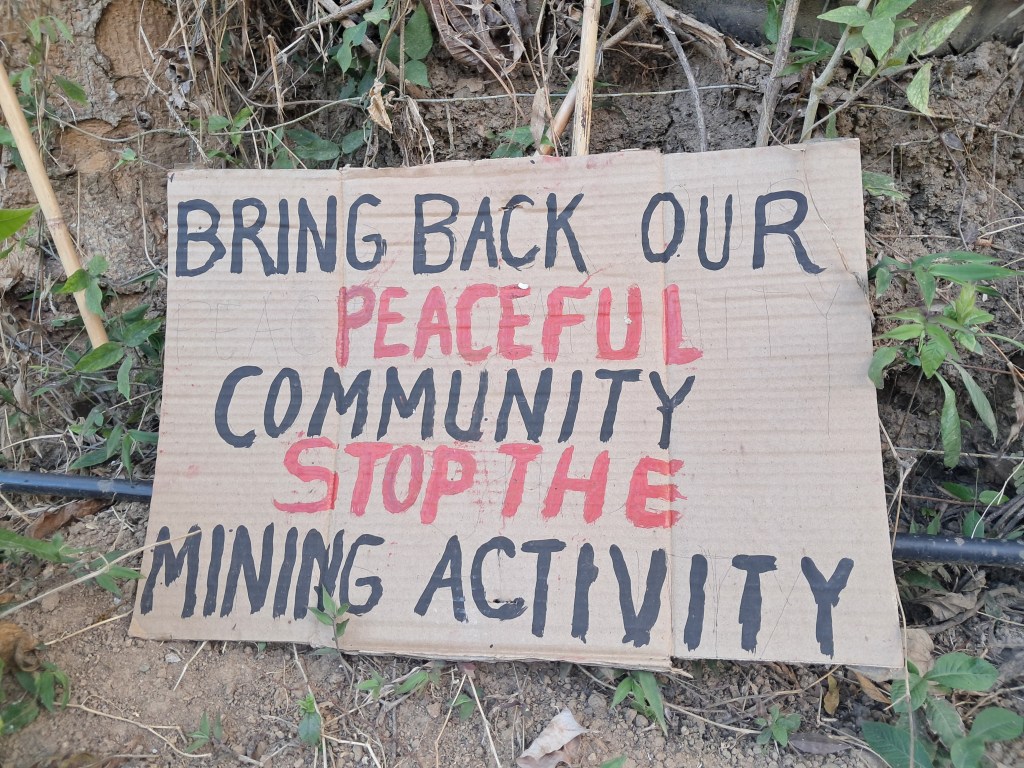 BRING BACK OUR
PEACEFUL
COMMUNITY
STOP THE
MINING ACTIVITY